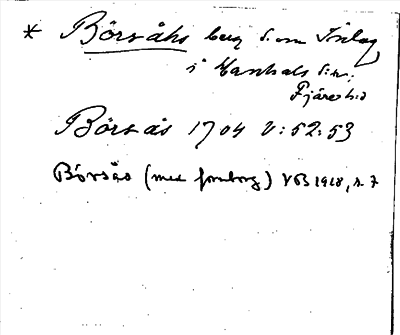 * Börsåhs berg S. om Inlag
i Hanhals s:n,
Fjäre h:d
Börsås 1704 V: 52:53
Börsås (med fornborg) VB 1918, s. 7